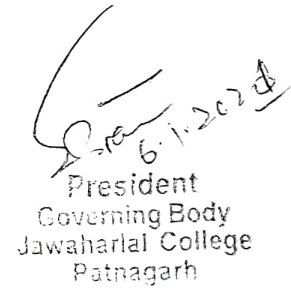 6.1.2021
President
Governing Body
Jawaharlal College
Patnagarh